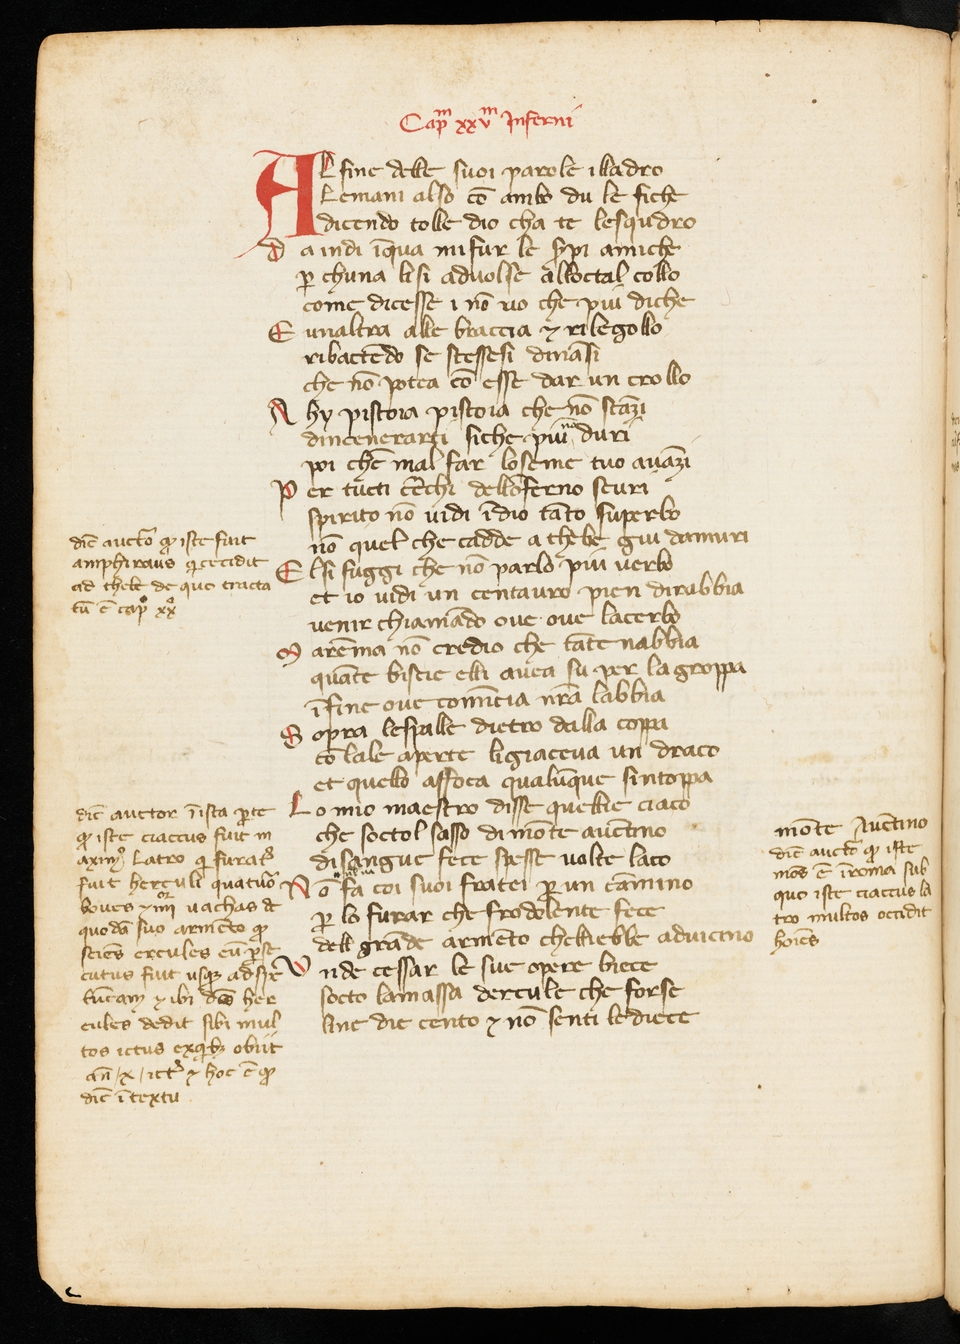 Cap̄ᵐ xxvᵐ Inferni
AL fine delle suoi parole illadro
Lemani also cō ambo du le fiche
dicendo tolle dio cha te lesqudro
D a indi īqua mi fur le s̄pi amiche
ꝑ chuna lisi aduolse alloctal collo
come dicesse i nō uo che piu diche
E unaltra alle braccia ⁊ rilegollo
ribactēdo se stessesi dināsi
che nō potea cō esse dar un crollo
A hy pistoia pistoia che nō stāzi
dincenerarti siche piu nō duri
poi chē mal far loseme tuo auāzi
P er tucti cērchi dellōferno scuri
spirito nō uidi īdio tāto superbo
nō quel che cadde a thebe giu damuri
E l si fuggi che nō parlo piu uerbo
et io uidi un centauro pien dirabbia
uenir chiamādo oue oue lacerbo
M arēma nō credio che tāte nabbia
quāte biscie elli auea su per la groppa
īfine oue comīcia nr̄a labbia
S opra lespalle dietro dalla coppa
cō lale aperte ligiaceua un draco
et quello affoca qualūque sintoppa
L o mio maestro disse quellie ciaco
che soctol sasso di mōte auētino
disangue fece spesse uolte laco
N ō fa coi suoi fratei ꝑ un cāmino
ꝑ lo furar che frodolente fece
dell grāde armēto chelliebbe aduicino
V nde cessar le sue opere biece
socto lamassa dercule che forse
line die cento ⁊ nō senti lediece
dic̄ auctō ꝙ iste fuit
amphiraus q̄ cecidit
ad thebē de quo tracta
tū ē cap̄º xxº
dic̄ auctor ī ista ꝑte
ꝙ iste ciaccus fuit m
aximꝰ latro q̄ furatꝰ
fuit herculi quatuō
boues ⁊ iiiiᵒʳ uachas de
quodā suo armēto ꝙ
sciēs ercules eū ꝑse
cutus fuit usqꝫ ad sp̄e
lūcam ⁊ ibi dc̄o her
cules dedit sibi mul
tos ictus ex qibꝫ obiit
añ /x/ ictꝰ ⁊ hoc ē ꝙ
dic̄ ī textu
mōte Auētino
dic̄ auctō ꝙ iste
mōs ē ī roma sub
quo iste ciaccus la
tro multos occidit
hoīes